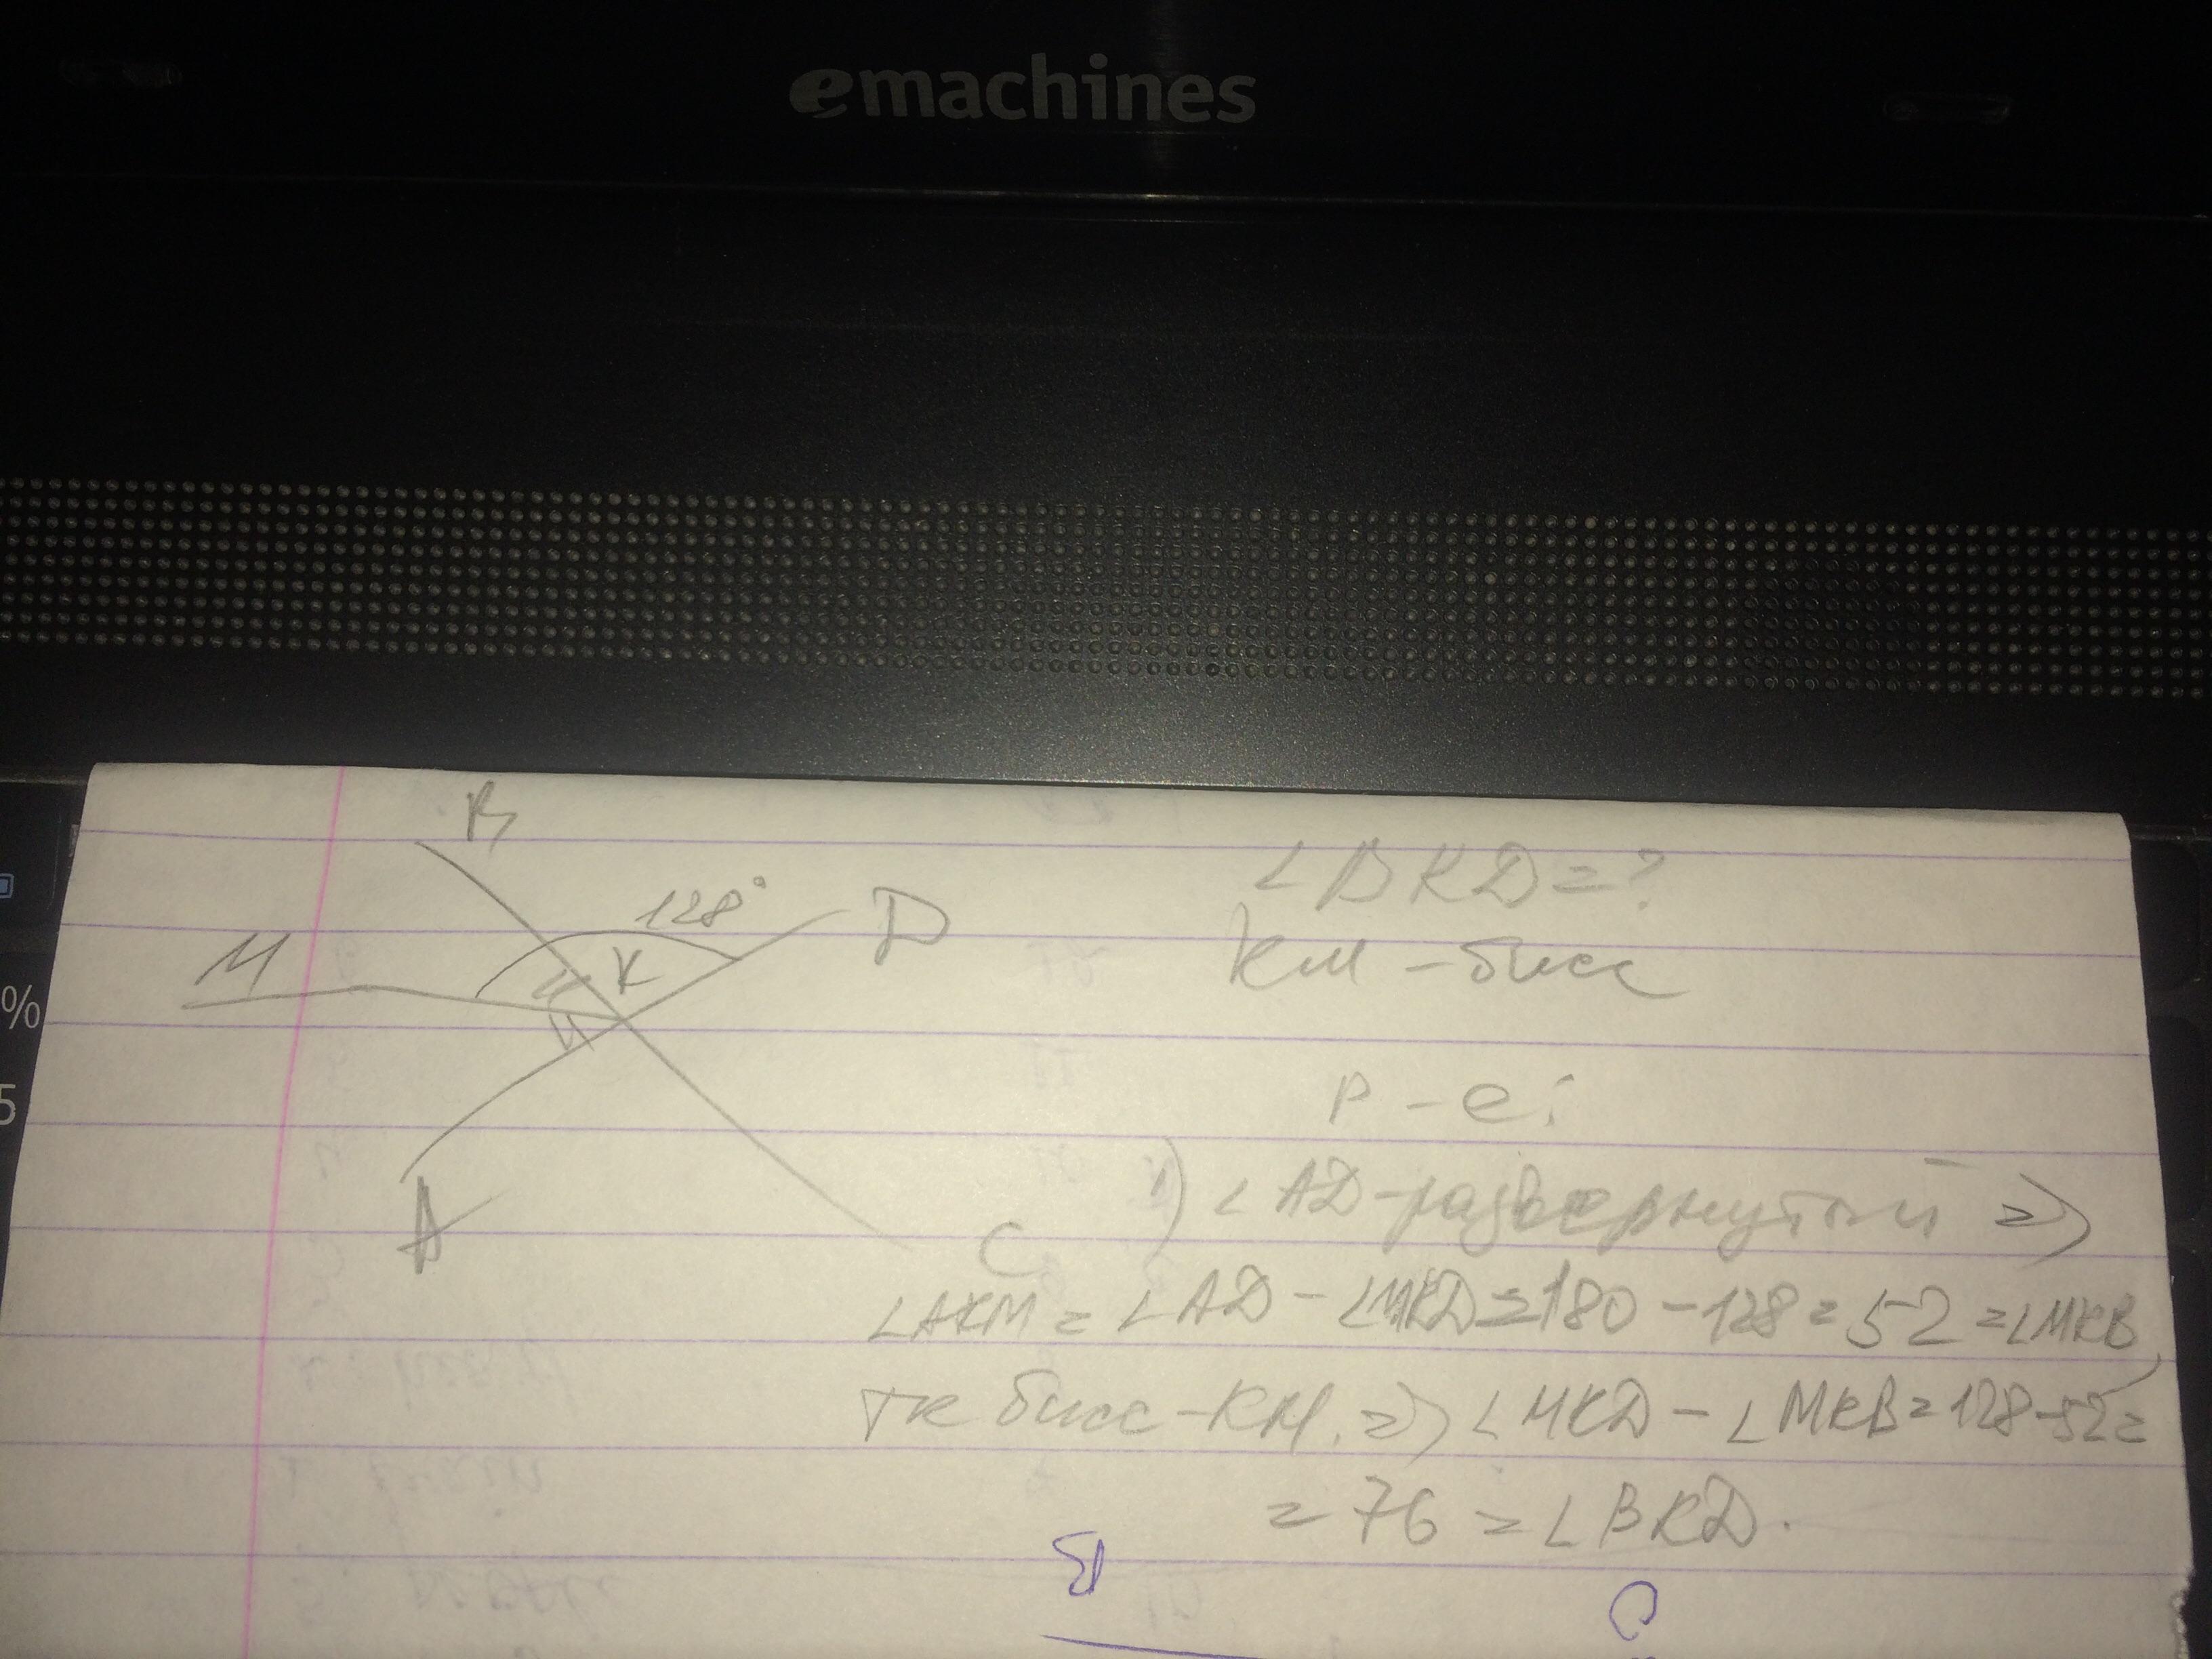 emachines
B
128°
D
M
K
A
C
∠BKD=?
KM - бисс
%
5
Р-е:
1) ∠AD-развернутый =>
∠AKM = ∠AD - ∠MKD = 180 - 128 = 52 = ∠MKB,
тк бисс-KM. => ∠MKD - ∠MKB = 128-52=
= 76 = ∠BKD.
B
C